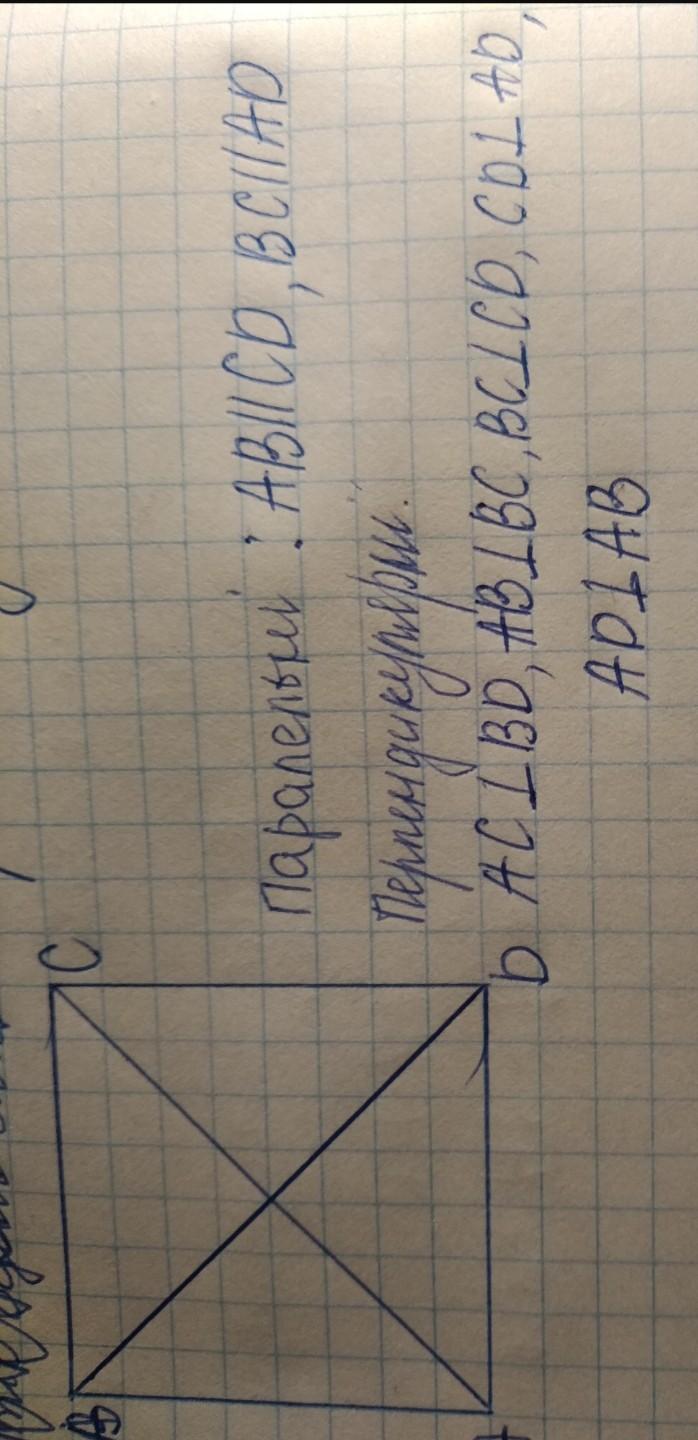 B
C
D
Паралельні : AB||CD, BC||AD
Перпендикулярні:
AC⊥BD, AB⊥BC, BC⊥CD, CD⊥AD,
AD⊥AB